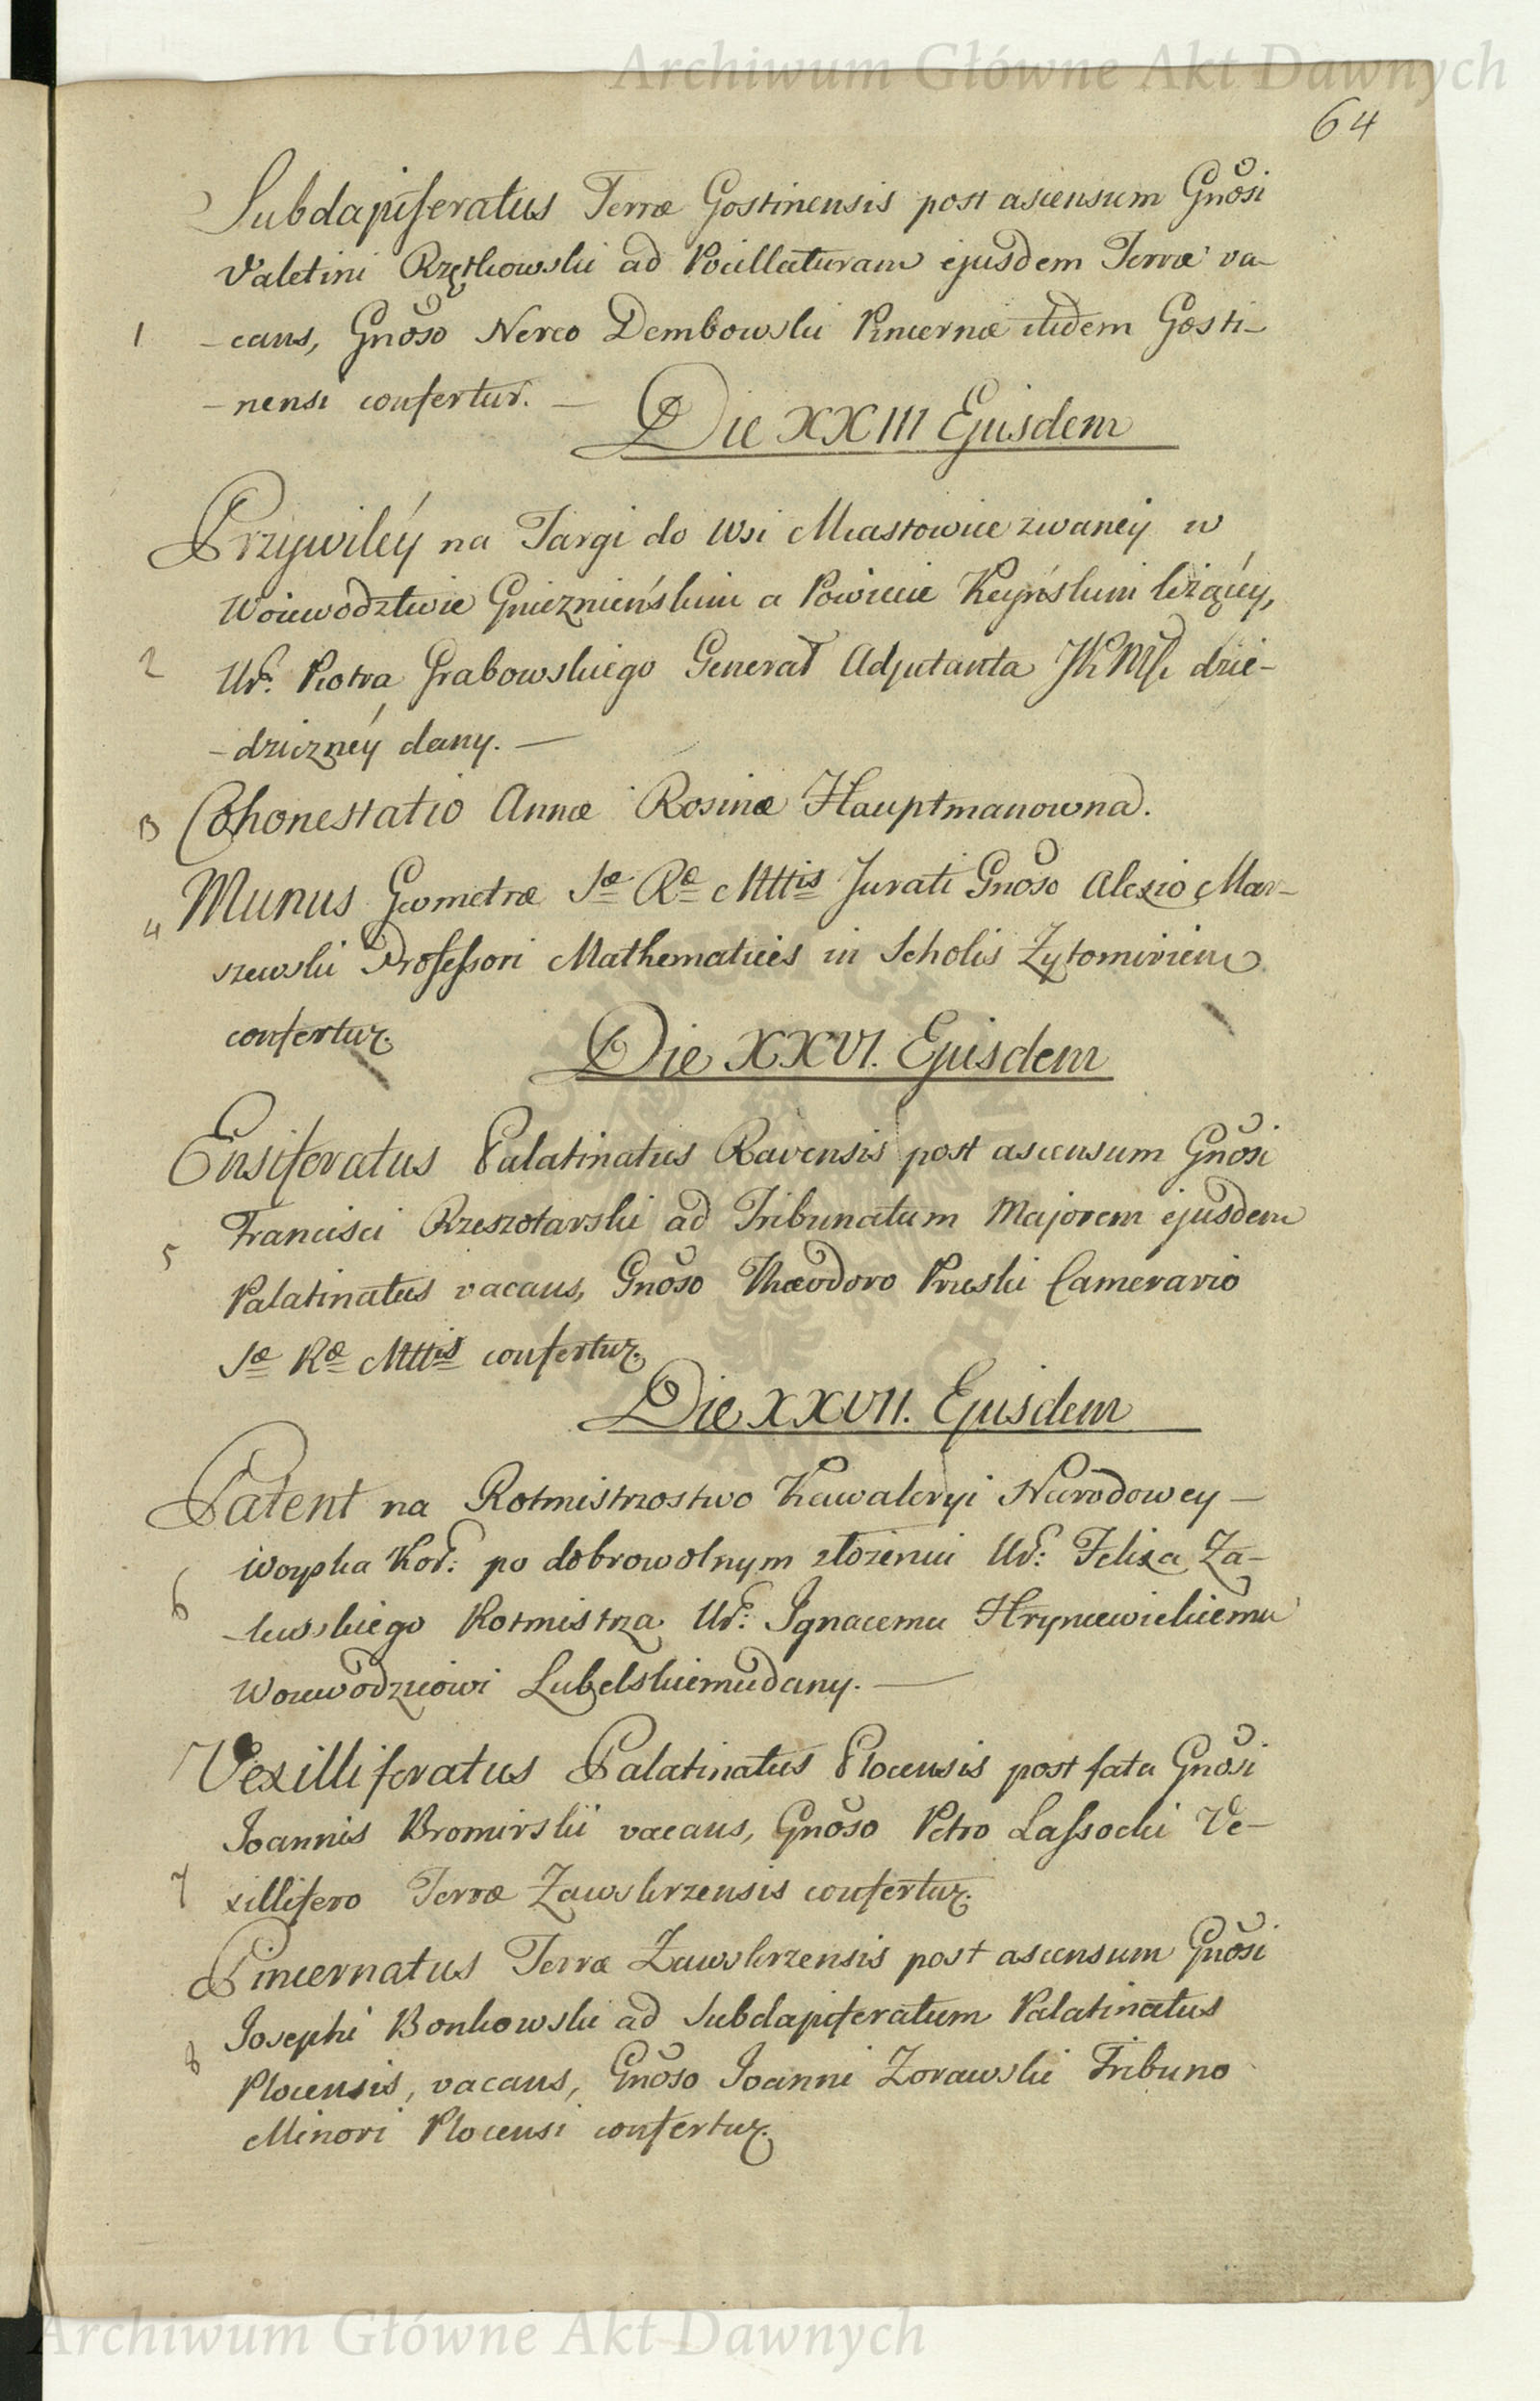 Archiwum Główne Akt Dawnych
64
Subdapiferatus Terræ Gostinensis post ascensum Gnősi
Valetini Rzętkowski ad Pocillaturam ejusdem Terræ va-
1 -cans, Gnőso Nereo Dembowski Pincernæ itidem Gosti-
-nensi confertur. —
Die XXIII Ejusdem
Przywiléy na Targi do Wsi Miastowice zwaney w
Woiewodztwie Gnieznieńskim a Powiecie Kcyńskim leżącéy,
2 Ur: Piotra Grabowskiego Generał Adjutanta JKMści dzie-
-dzicznéy dany. —
3 Cohonestatio Annæ Rosinæ Hauptmanowna.
4 Munus Geometræ Sæ Ræ Mttis Jurati Gnőso Alexio Mar-
szewski Professori Mathematices in Scholis Zytomiriens
confertur.
Die XXVI. Ejusdem
Ensiferatus Palatinatus Ravensis post ascensum Gnősi
Francisci Rzeszotarski ad Tribunatum Majorem ejusdem
5 Palatinatus vacans, Gnőso Theodoro Pruski Camerario
Sæ Ræ Mttis confertur.
Die XXVII. Ejusdem
Patent na Rotmistrzostwo Kawaleryi Narodowey —
Woyska Kor: po dobrowolnym złożeniu Ur: Felixa Za-
6 -kwskiego Rotmistrza Ur: Ignacemu Hryncewickiemu
Woiewodzicowi Lubelskiemu dany. —
Vexilliferatus Palatinatus Plocensis post fata Gnősi
Joannis Bromirskï vacans, Gnőso Petro Lassocki Ve-
7 xillifero Terræ Zawskrzensis confertur.
Pincernatus Terræ Zawskrzensis post ascensum Gnősi
Josephi Bonkowski ad Subdapiferatum Palatinatus
8 Plocensis, vacans, Gnőso Joanni Zorawski Tribuno
Minori Plocensi confertur.
Archiwum Główne Akt Dawnych